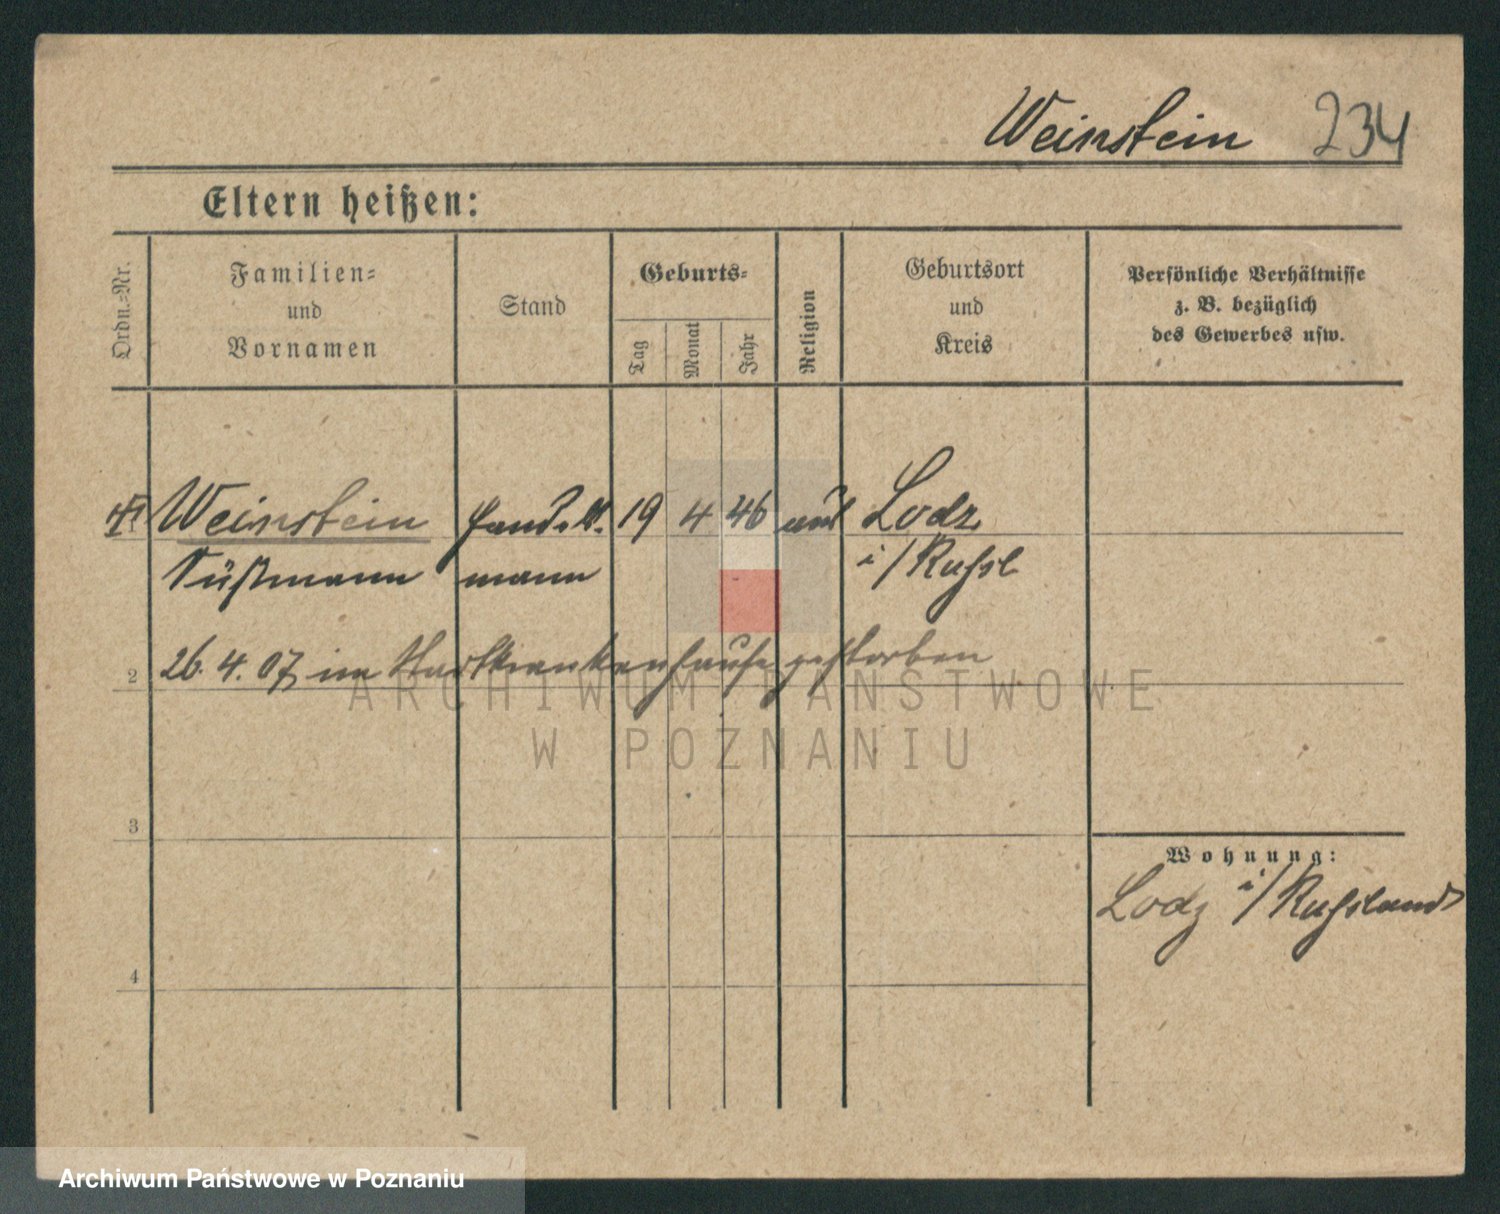 Weinstein 234
Eltern heißen:
Ordn.-Nr.
Familien-
und
Vornamen
Stand
Geburts-
Tag
Monat
Jahr
Religion
Geburtsort
und
Kreis
Persönliche Verhältnisse
z. B. bezüglich
des Gewerbes usw.
Weinstein 19 4 46 Lodz
Süßmann mann i/Russl
2 26. 4. 07 im Stadtkrankenhause gestorben
3
Wohnung:
Lodz i/Russland
4
ARCHIWUM PAŃSTWOWE
W POZNANIU
Archiwum Państwowe w Poznaniu